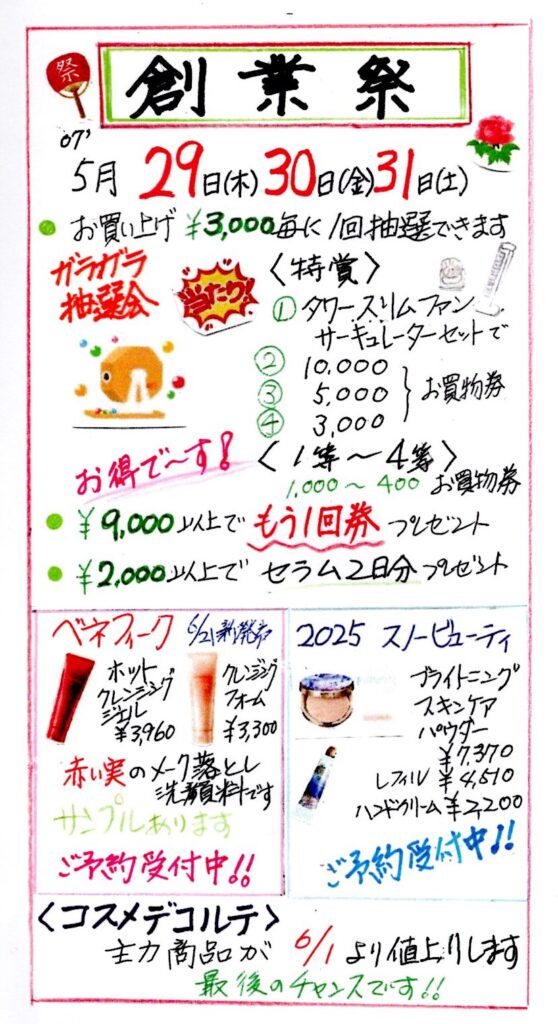 祭
創業祭
07'
5月 29日(木)30日(金)31日(土)
お買い上げ ¥3,000毎に 1回抽選できます
ガラガラ
抽選会
当たり!
〈特賞〉
① タワースリムファン
サーキュレーターセットで
② 10,000
③ 5,000
④ 3,000
お買物券
お得で〜す!
〈1等〜4等〉
1,000〜400 お買物券
¥9,000以上で もう1回券 プレゼント
¥2,000以上で セラム2日分 プレゼント
ベネフィーク 6/21新発売
ホット
クレンジング
ジェル
¥3,960
クレンジング
フォーム
¥3,300
赤い実のメーク落とし
洗顔料です
サンプルあります
ご予約受付中!!
2025 スノービューティ
ブライトニング
スキンケア
パウダー
¥7,370
レフィル ¥4,510
ハンドクリーム ¥2,200
ご予約受付中!!
〈コスメデコルテ〉
主力商品が 6/1より値上りします
最後のチャンスです!!